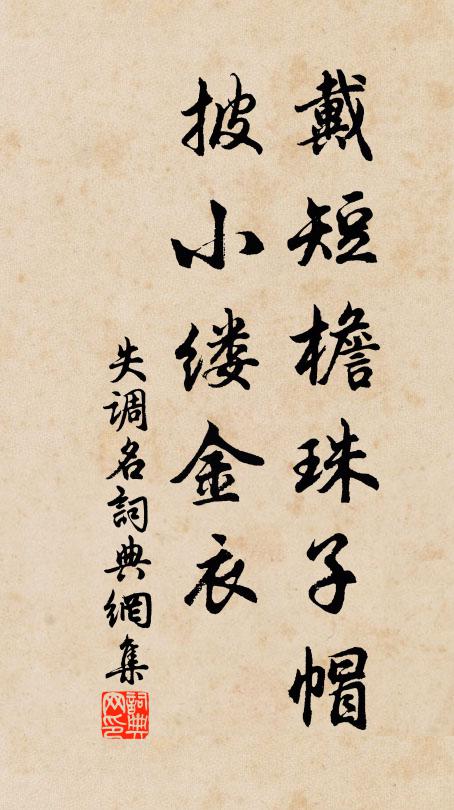 戴短檐珠子帽
披小缕金衣
失调名詞典網集
詞典网印